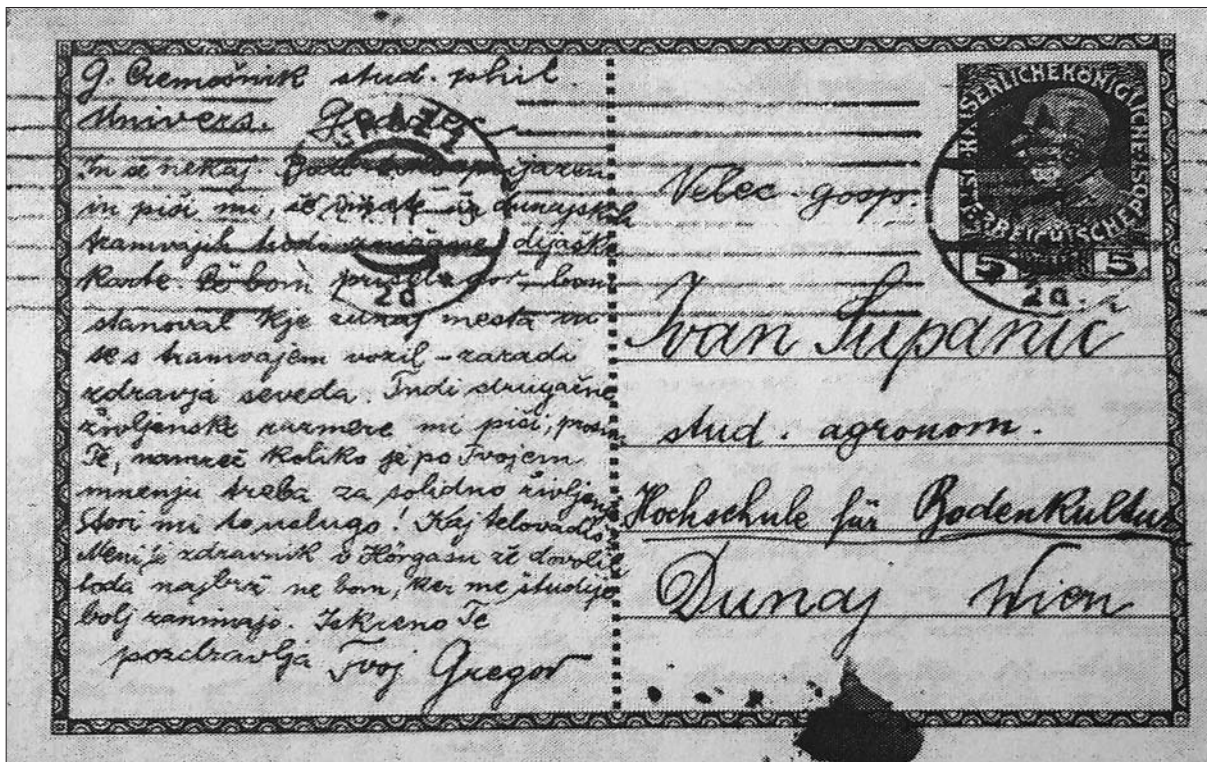 G. Čremošnik stud. phil.
Univers. Gradec
In še nekaj. Bodi tako prijazen
in piši mi, če imate v dunajskih
tramvajih tudi znižane dijaške
karte. Če bom prišel gor, bom
stanoval kje zunaj mesta in
se s tramvajem vozil – zaradi
zdravja seveda. Tudi drugačne
življenske razmere mi piši, prosim
Te, namreč koliko je po Tvojem
mnenju treba za solidno življenje
Stori mi to uslugo! Kaj telovadiš?
Meni je zdravnik v Hörgasu že dovolil
toda najbrž ne bom, ker me študije
bolj zanimajo. Iskreno Te
pozdravlja Tvoj Gregor
GRAZ 1
2d
KAISERLICHE KÖNIGLICHE ÖSTERREICHISCHE POST
5 5
2d.
Velec. gosp.
Ivan Šupanič
stud. agronom.
Hochschule für Bodenkultur
Dunaj Wien